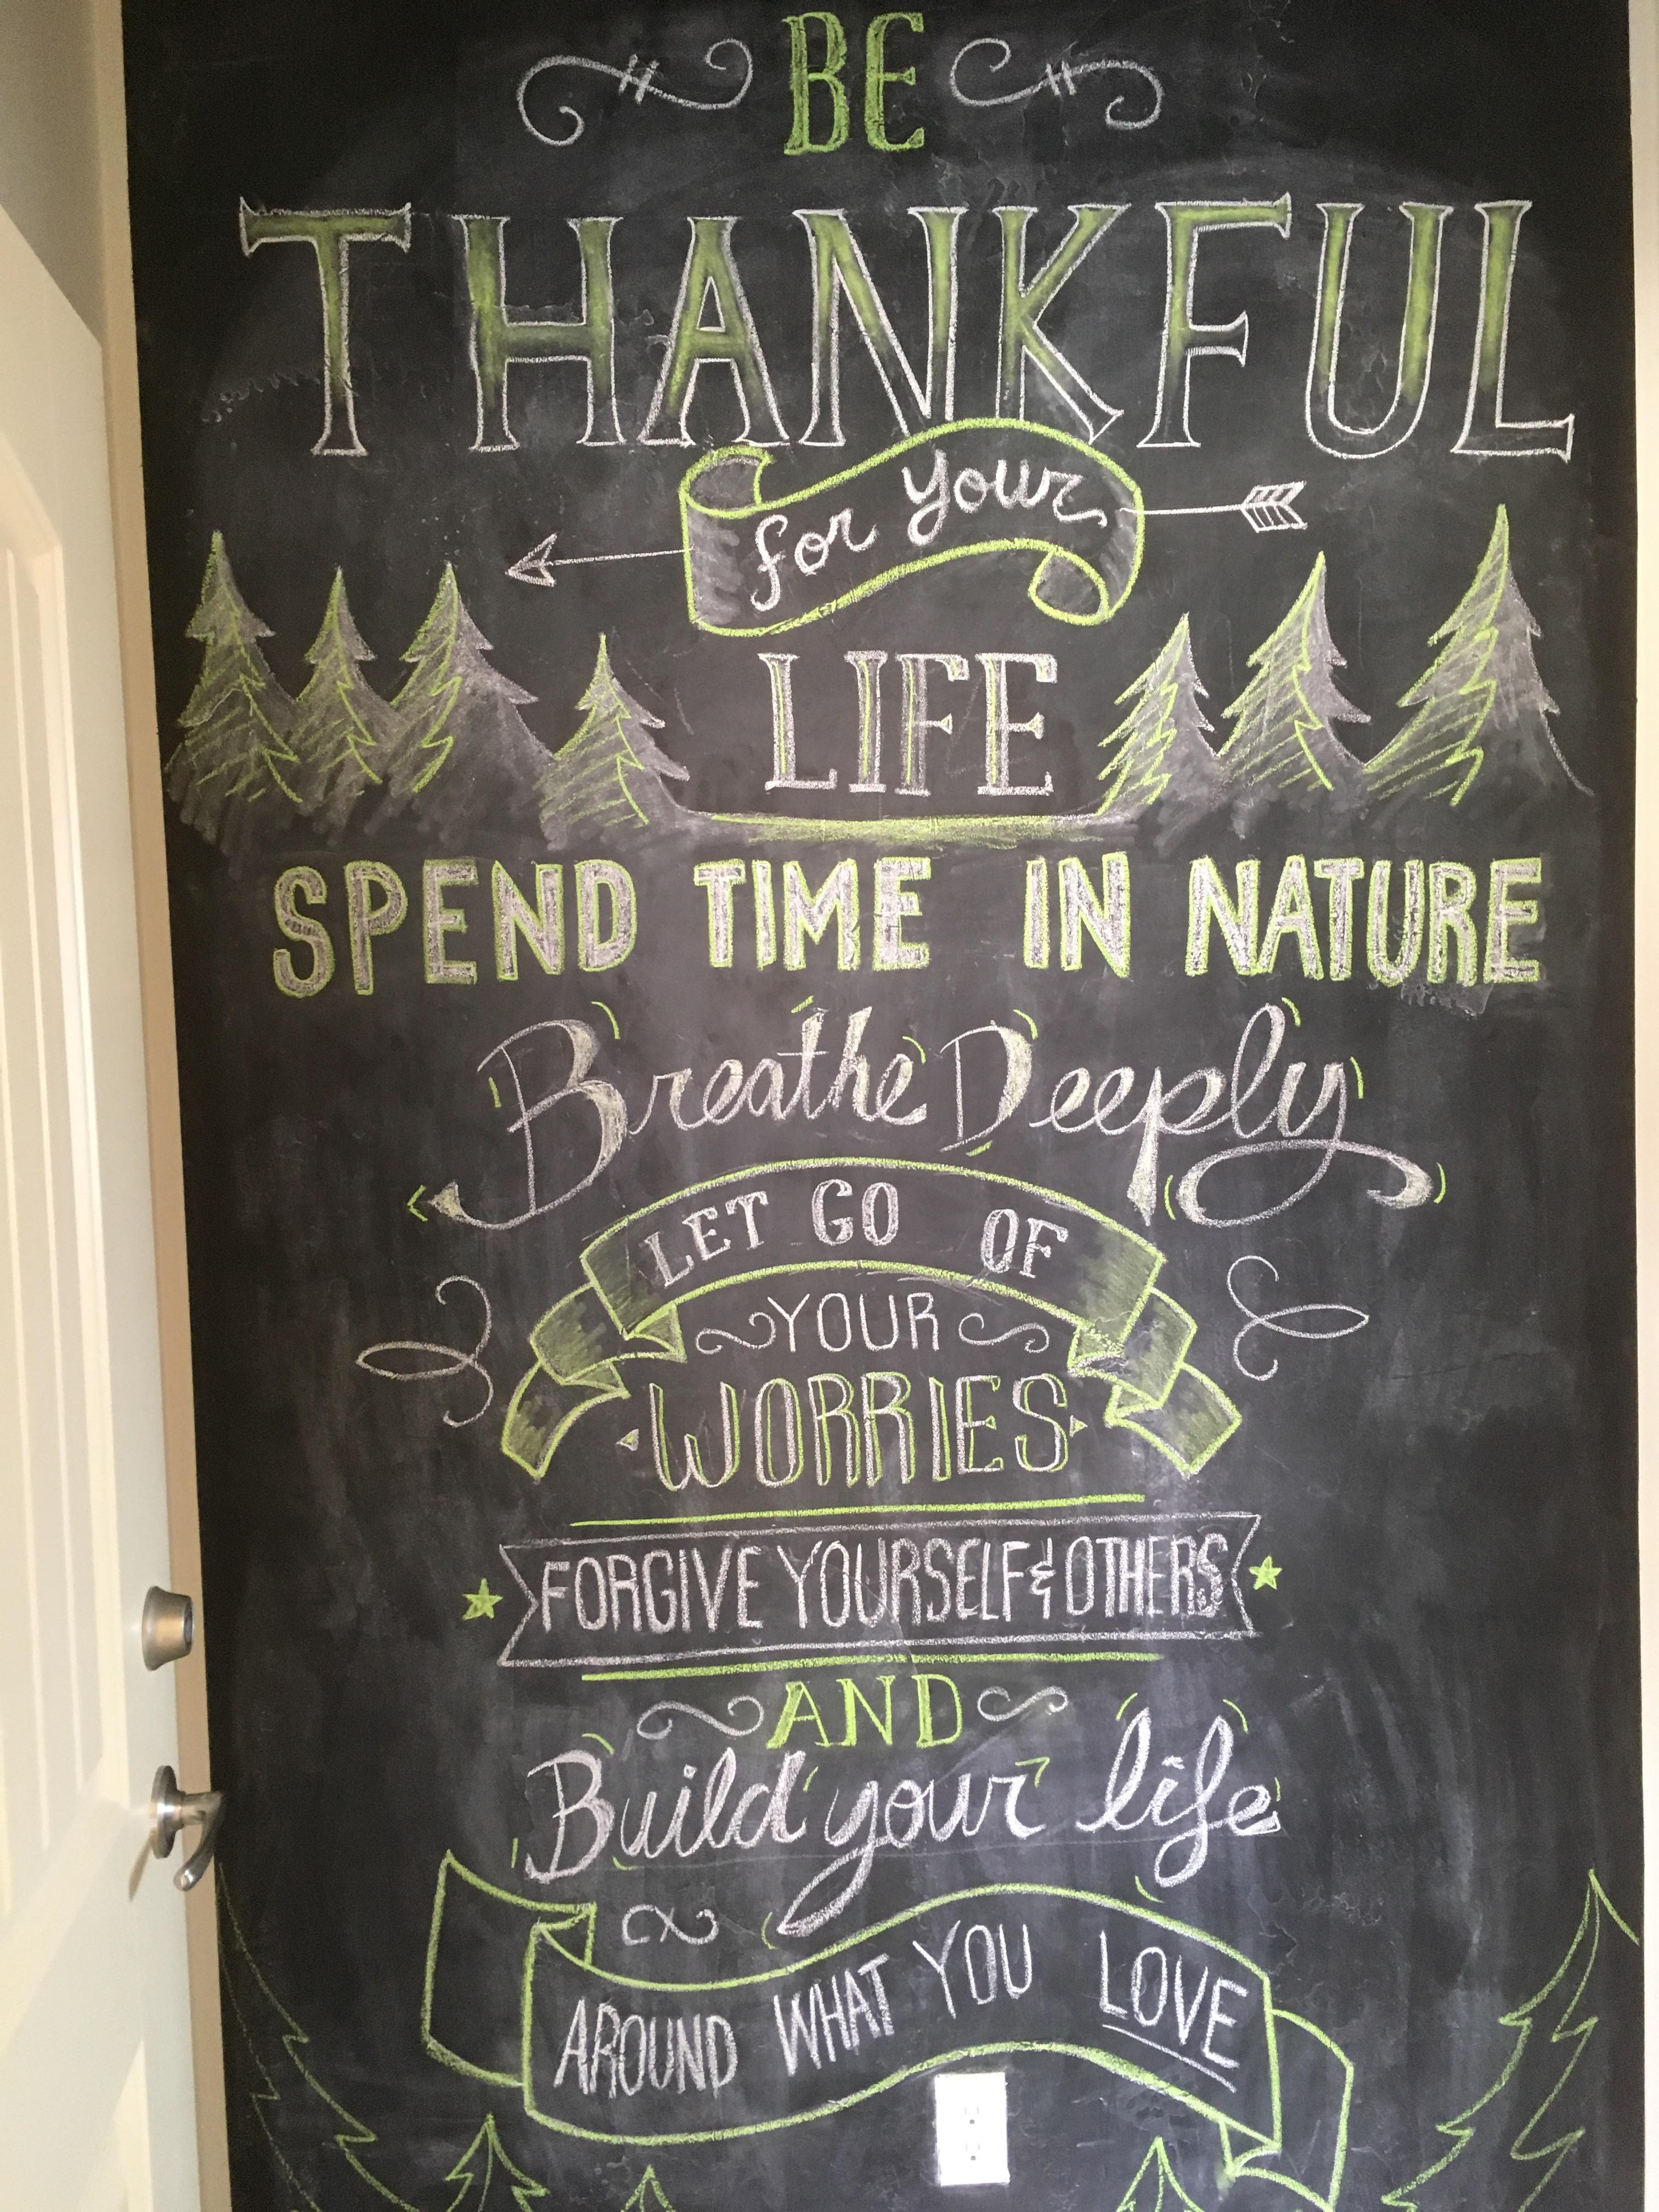 BE
THANKFUL
for your
LIFE
SPEND TIME IN NATURE
Breathe Deeply
LET GO OF
YOUR
WORRIES
FORGIVE YOURSELF & OTHERS
AND
Build your life
AROUND WHAT YOU LOVE